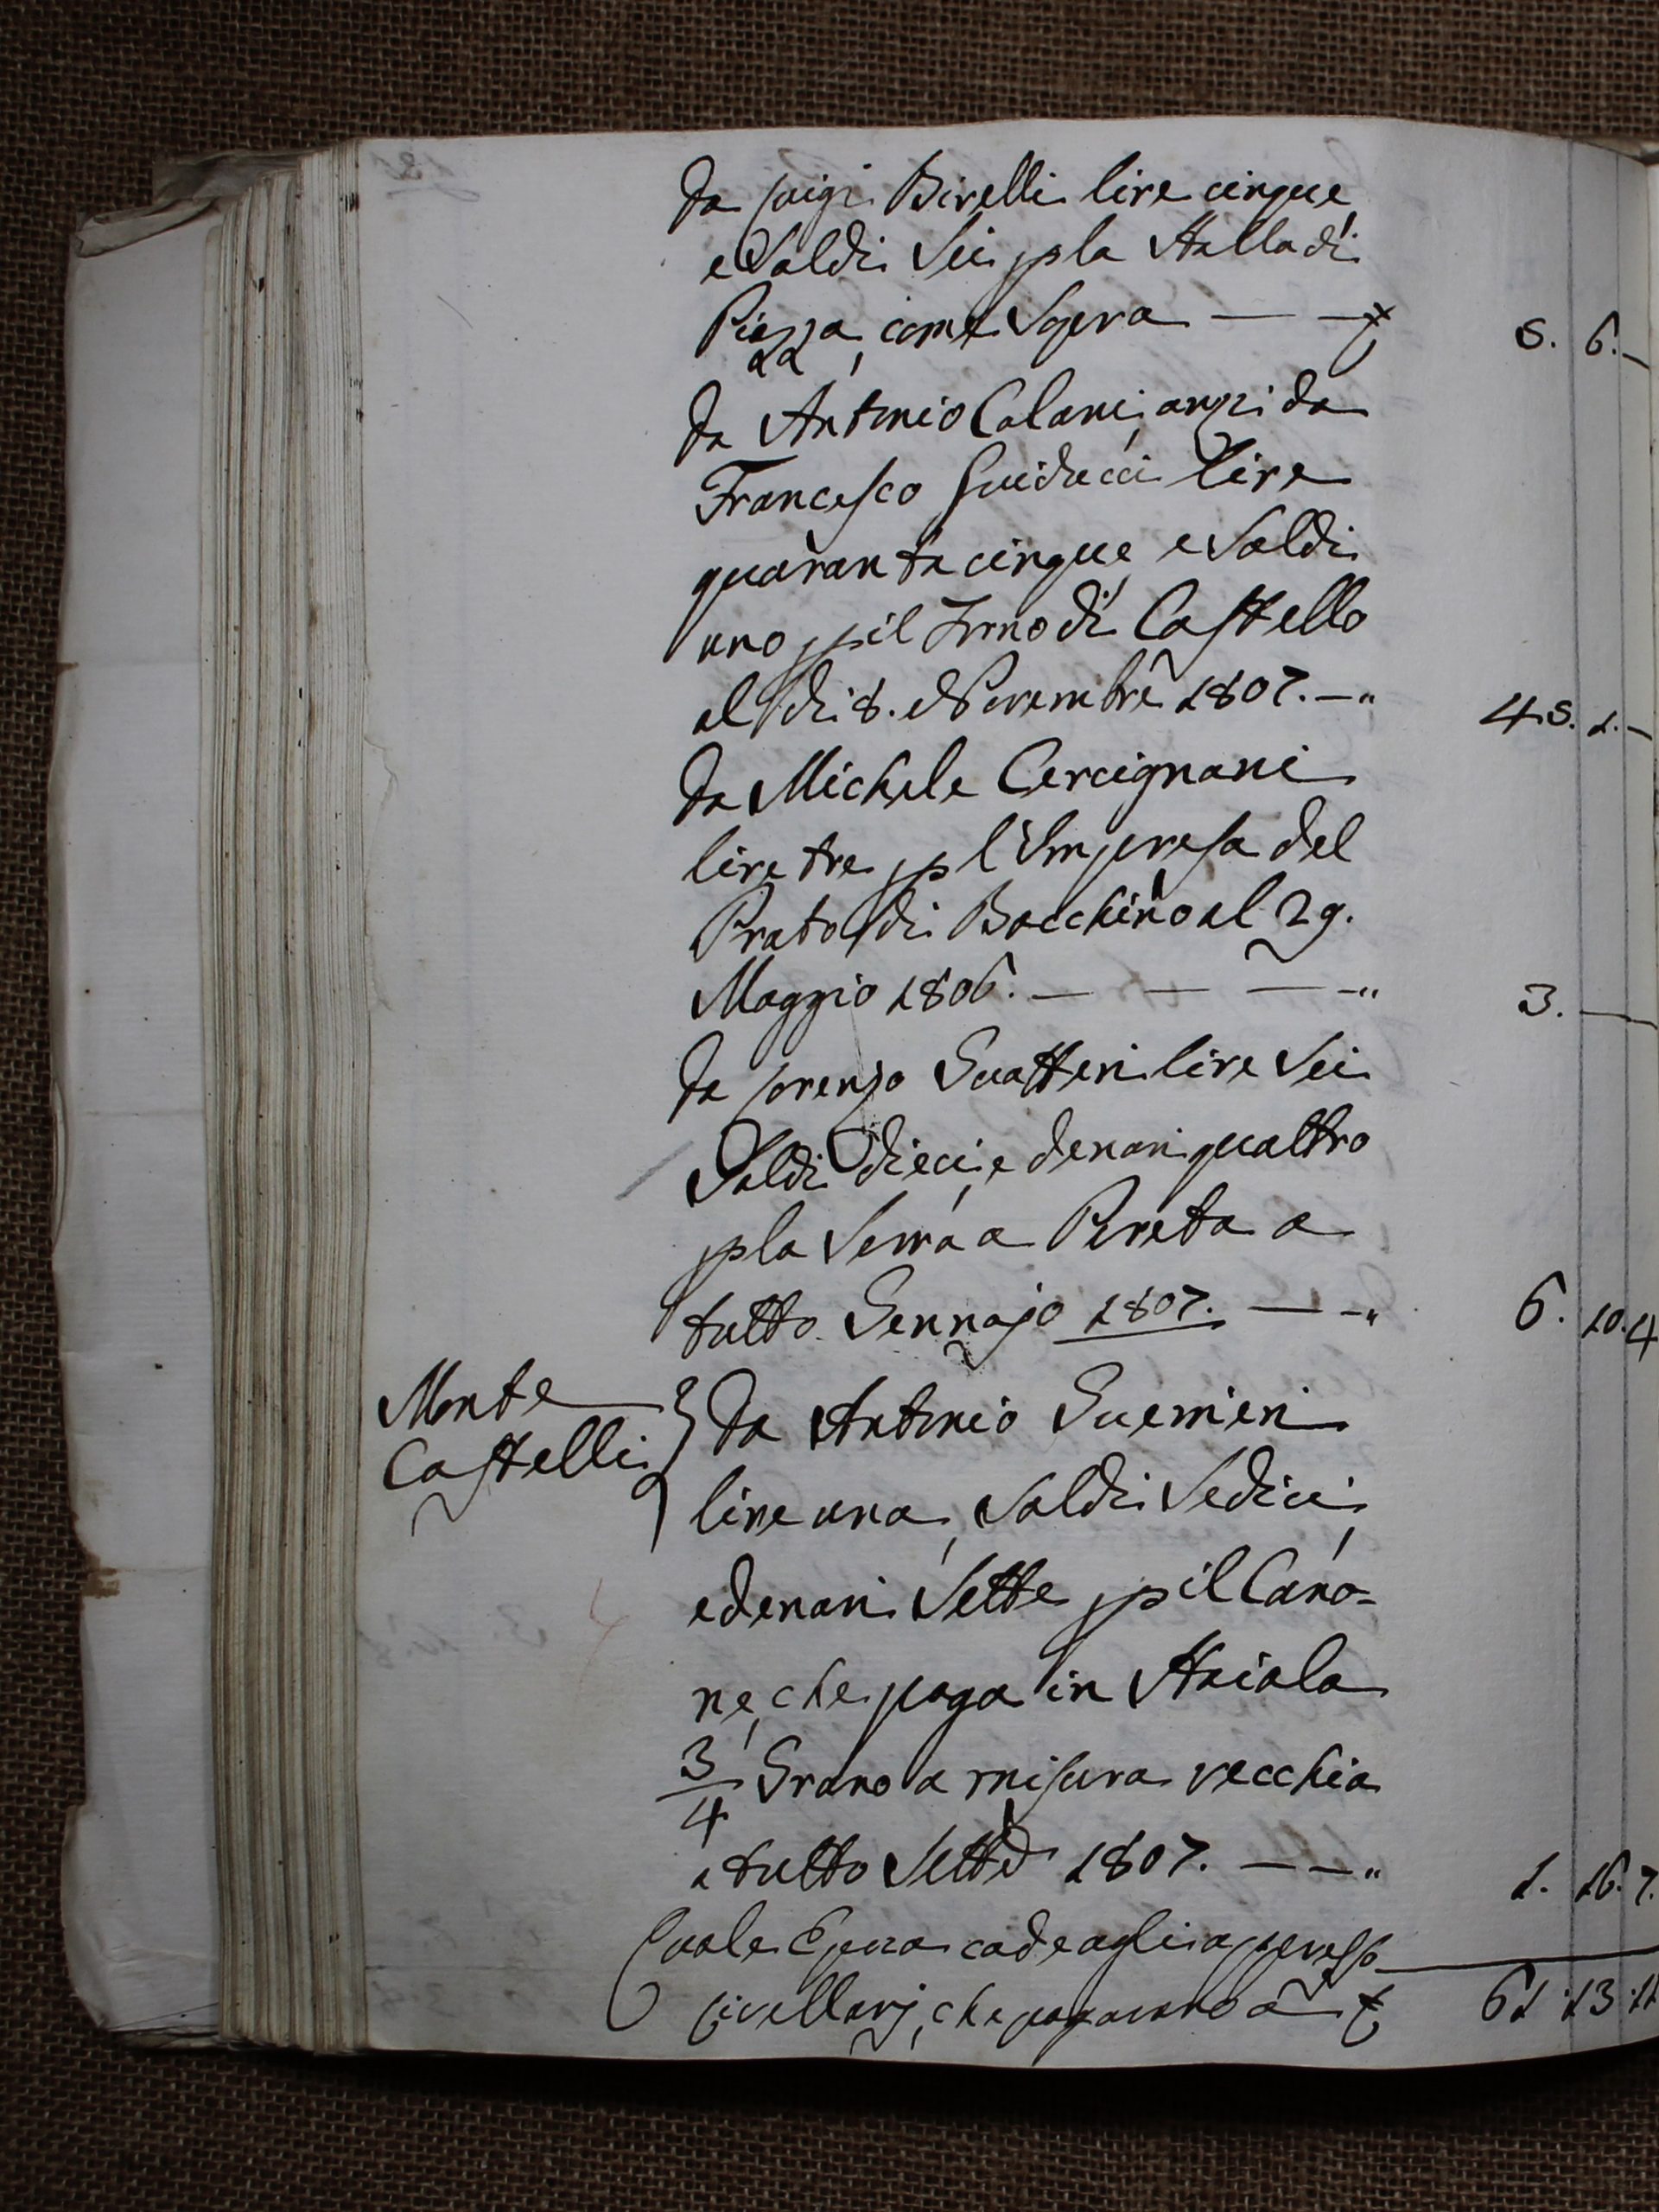 da Luigi Birelli lire cinque
e Soldi Sei p la Stalla di
Piazza, come Sopra — — £ 5. 6. —
da Antonio Calani, anzi da
Francesco Guiducci lire
quaranta cinque, e Soldi
uno p il Forno di Castello
al di 8. Novembre 1807. — " 45. 1. —
da Michele Cercignani
lire tre p l'Impresa del
Prato di Bocchino al 29.
Maggio 1806. — — — — " 3. —
da Lorenzo Guatteri lire Sei
Soldi dieci, e denari quattro
p la Serra a Pereta a
tutto Gennajo 1807. — — " 6. 10. 4
Monte
Castelli
da Antonio Guerrieri
lire una, Soldi Sedici,
e denari Sette p il Cano=
ne, che paga in Staiola
3/4 Grano a misura vecchia
a tutto Sett.e 1807. — — " 1. 16. 7.
Quale Epoca cade agli appresso
Livellarj, che pagavano a £ 61. 13. 11